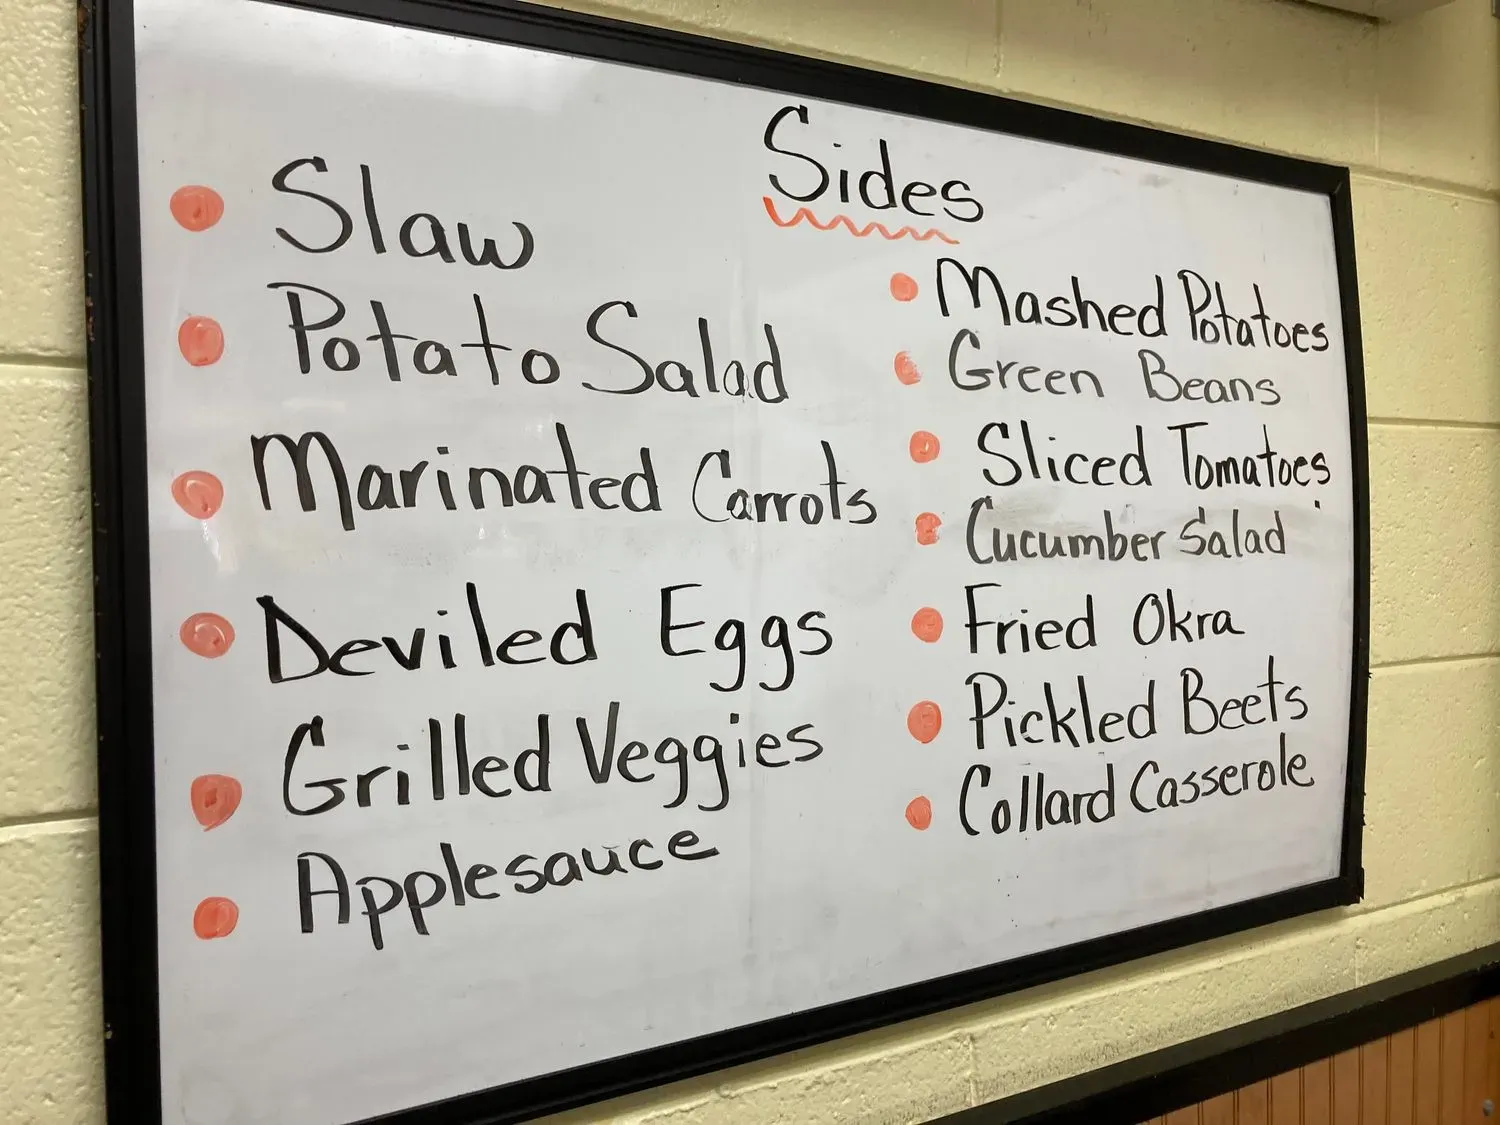 Sides
Slaw
Potato Salad
Marinated Carrots
Deviled Eggs
Grilled Veggies
Applesauce
Mashed Potatoes
Green Beans
Sliced Tomatoes
Cucumber Salad
Fried Okra
Pickled Beets
Collard Casserole